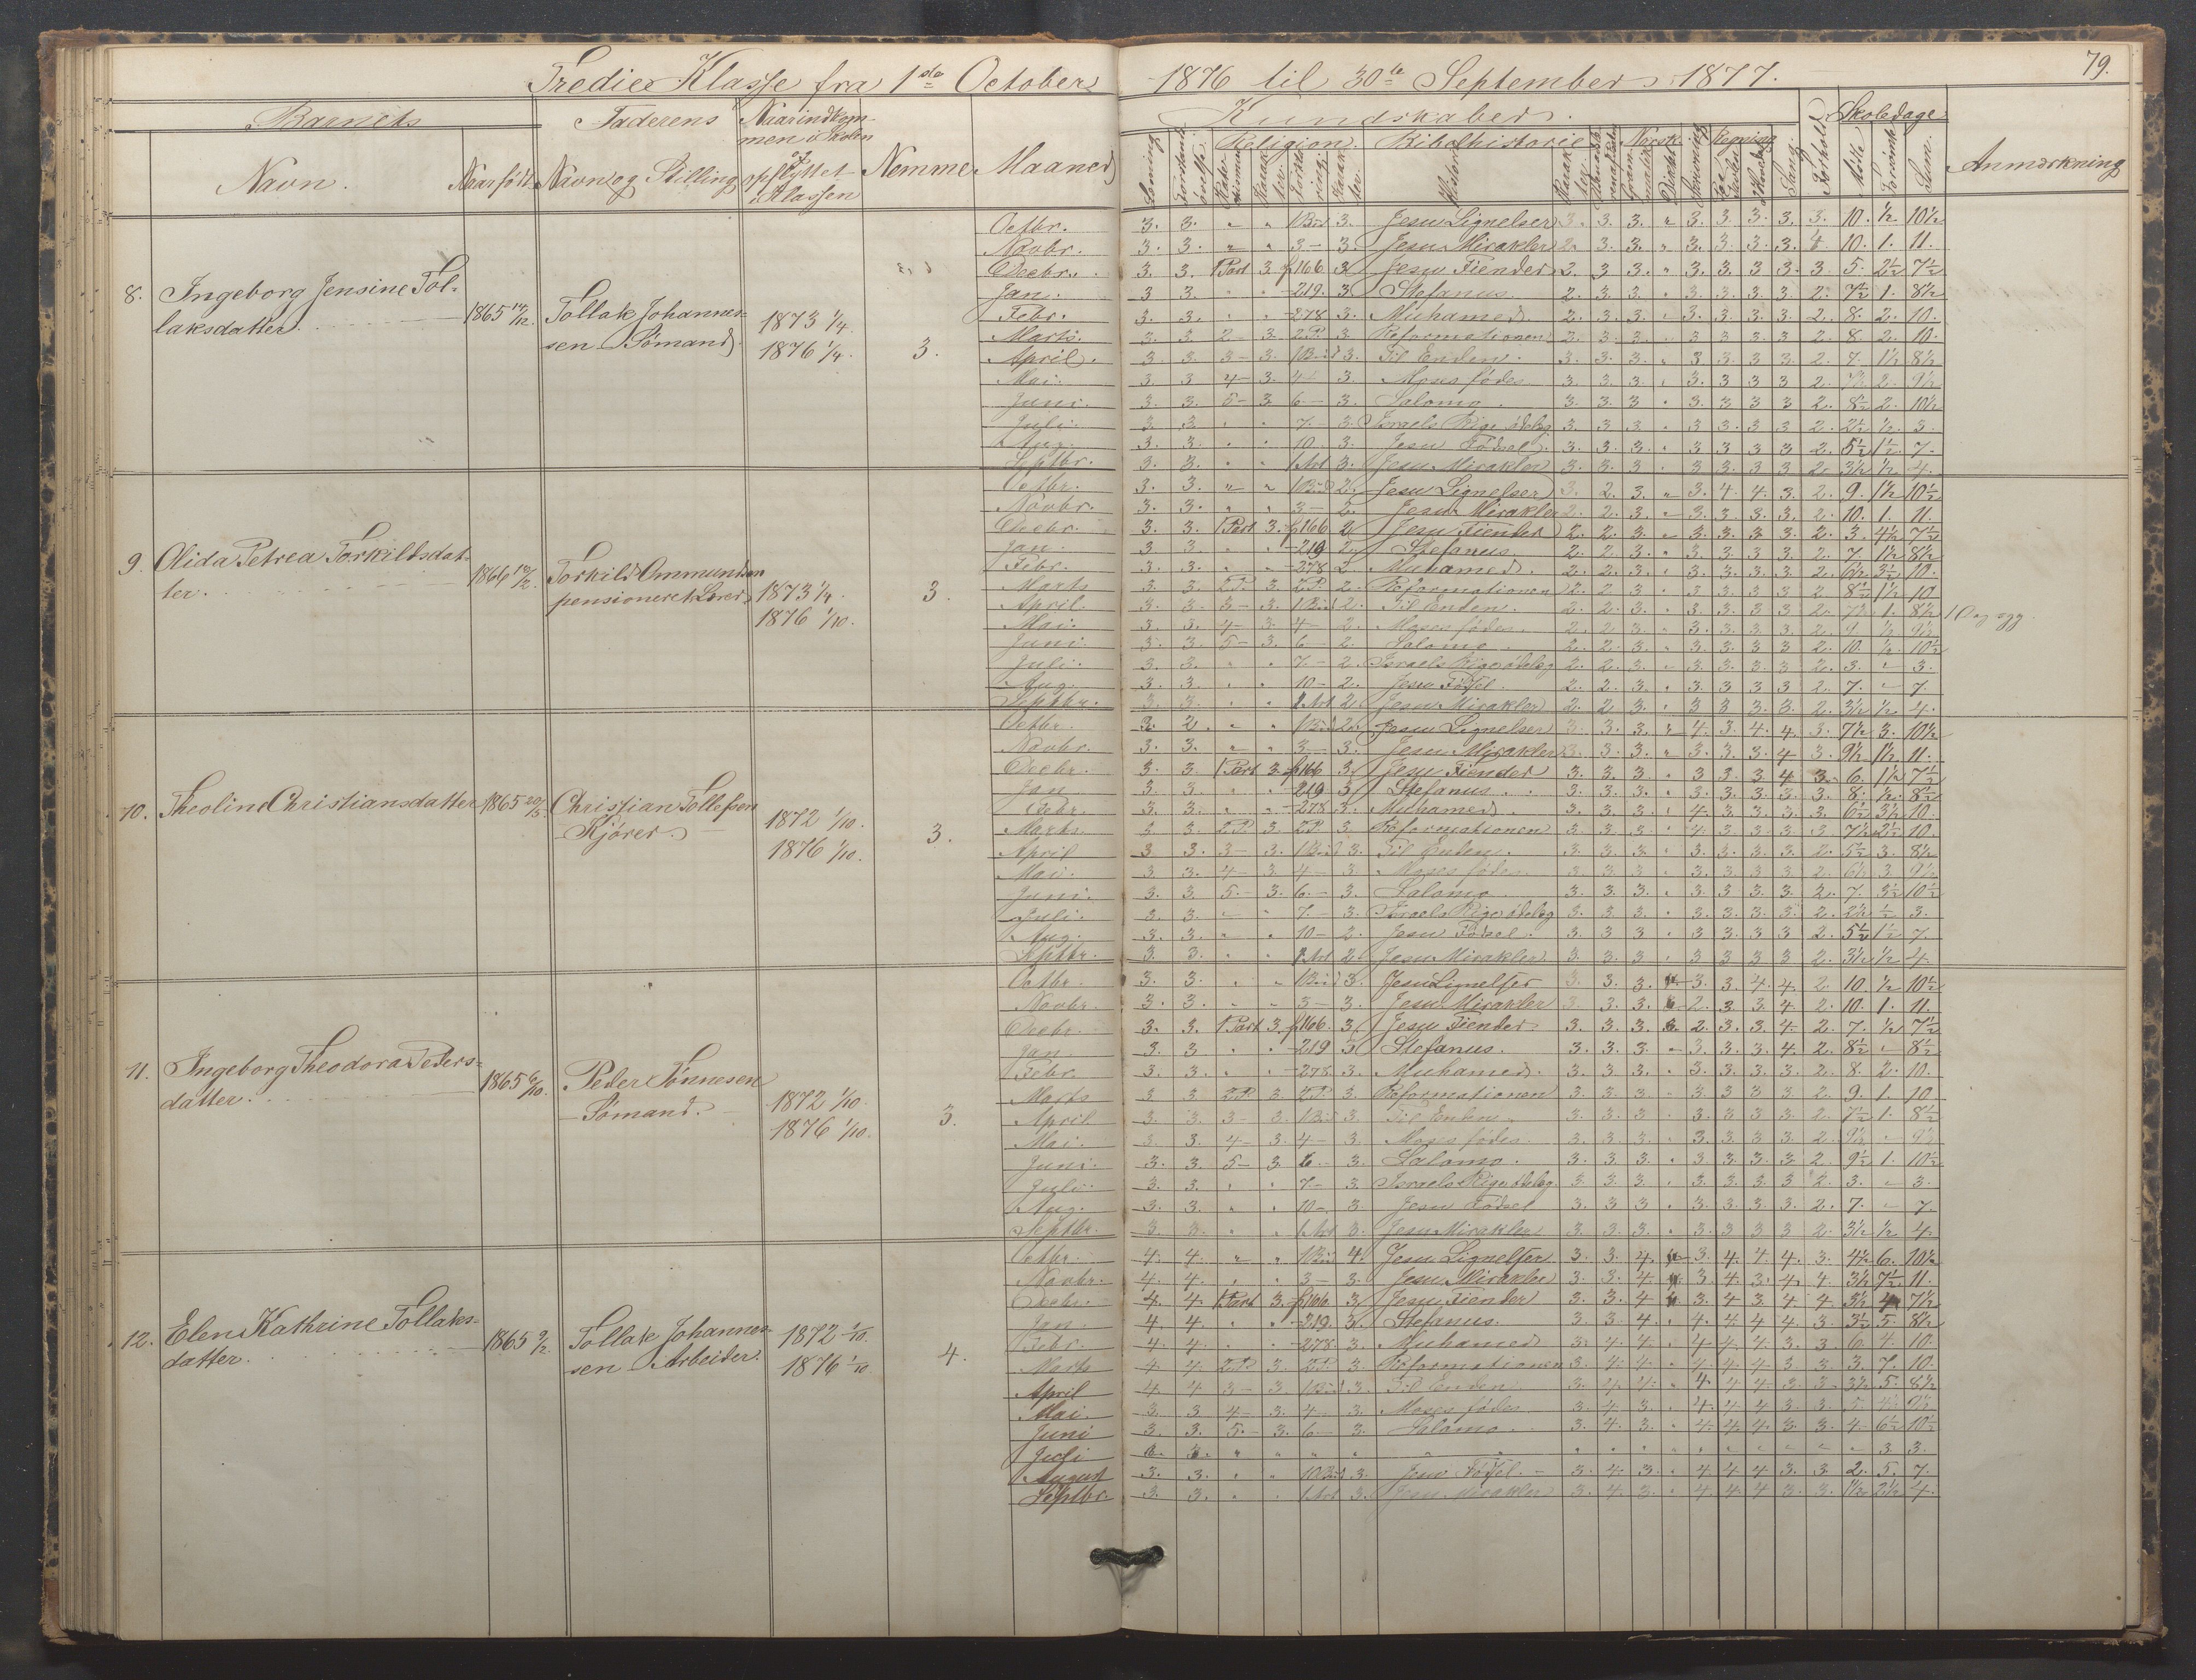 79.
Tredie Klasse fra 1ste October 1876 til 30te September 1877.
Barnets Faderens Naar indkommen i Skolen og opflyttet i Klassen Nemme Maaned
Navn. Naar født Navn og Stilling
Kundskaber. Forhold Skoledage Anmærkning
Religion Bibelhistorie Norsk Regning Sang
Læsning Historie Diktat Mødte Forsømte Sum
8. Ingeborg Jensine Tol-
laksdatter. 1865 14/12. Tollak Johannes-
sen Sömand 1873 1/4. 1876 1/4. 3.
Octbr. 3. 3. „ „ 1 Bud 3. Jesu Lignelser 3. 3. 3. „ 3. 3. 3. 3. 3. 10. 1/2 10 1/2
Novbr. 3. 3. „ „ 3 — 3. Jesu Mirakler 2. 3. 3. „ 3. 3. 3. 3. 4. 10. 1. 11.
Decbr. 3. 3. 1 Part 3. p 166 3 Jesu Fiender 2. 3 3. „ 3. 3. 3 3. 3. 5. 2 1/2 7 1/2
Jan. 3 3. „ „ -219. 3 Stefanus. 2. 3. 3. „ 3. 3. 3. 3 2. 7 1/2 1. 8 1/2
Febr. 3. 3. „ „ -278 3. Muhamed. 2. 3. 3. „ 3. 3. 3. 3. 2. 8. 2. 10.
Marts. 3. 3. 2 — 3. 2 P. 3 Reformationen 2. 3. 3. „ 3 3 3. 3 2. 8. 2. 10.
April. 3. 3. 3 — 3. 1 Bud 3. Til Enden. 3. 3. 3. „ 3 3 3 3. 2. 7. 1 1/2 8 1/2
Mai. 3. 3 4 — 3. 4 — 3. Moses födes. 3. 3. 3. „ 3. 3 3 3 2. 7 1/2 2. 9 1/2
Juni. 3. 3. 5 — 3 6. — 3. Salomo. 3. 3. 3 „ 3. 3 3 3 2. 8 1/2 2. 10 1/2
Juli. 3 3. „ „ 7. — 3. Israels Rige ödelæg 3. 3 3 „ 3 3. 3 3 2. 2 1/2 1/2 3.
Aug. 3. 3. „ „ 10. 3. Jesu Födsel. 3. 3. 3. „ 3 3 3 3 2. 5 1/2 1 1/2 7.
Septbr. 3. 3. „ „ 1 Art 3. Jesu Mirakler 3. 3. 3 „ 3 3. 3 3 2. 3 1/2 1/2 4.
9. Olida Petrea Torkildsdat-
ter. 1866 10/2. Torkild Ommundsen
pensioneret Lærer 1873 1/4. 1876 1/10. 3.
Octbr. 3. 3. „ „ 1 Bud 2. Jesu Lignelser 3. 2. 3. „ 3. 4. 4. 3. 2. 9. 1 1/2 10 1/2
Novbr. 3. 3. „ „ 3 — 2. Jesu Mirakler 2. 2. 3. „ 3. 3. 3. 3. 2. 10. 1. 11.
Decbr. 3. 3. 1 Part 3. p 166 2 Jesu Fiender 2. 2. 3. „ 3. 3. 3. 3. 2. 3. 4 1/2 7 1/2
Jan. 3 3. „ „ -219 2. Stefanus. 2. 2. 3. „ 3. 3. 3. 3. 2. 7. 1 1/2 8 1/2
Febr. 3. 3. „ „ -278 2 Muhamed. 2. 2. 3. „ 3. 3. 3. 3. 2. 6 1/2 3 1/2 10.
Marts 3. 3. 2 P. 3. 2 P. 2. Reformationen 2. 2 3 „ 3. 3 3 3 2 8 1/2 1 1/2 10
April. 3. 3. 3 — 3. 1 Bud 2. Til Enden. 2. 2. 3. „ 3. 3 3 3 2. 7 1/2 1. 8 1/2
Mai. 3. 3. 4 — 3. 4 — 2. Moses födes. 2. 2 3 „ 3. 3. 3. 3. 2. 9 1/2 9 1/2
Juni. 3. 3. 5 — 3. 6 — 2. Salomo. 2. 2. 3. „ 3. 3. 3 3 2. 10. 1/2 10 1/2
Juli. 3. 3. „ „ 7. — 2. Israels Rige ödelæg 2. 2. 3. „ 3. 3. 3. 3 2. 3. „ 3.
Aug. 3. 3. „ „ 10 — 2. Jesu Födsel. 2. 2. 3. „ 3. 3 3 3 2. 7. „ 7.
Septbr. 3. 3. „ „ 1 Art 2 Jesu Mirakler 2. 2 3. „ 3 3 3. 3. 2. 3 1/2 1/2 4.
10. Theoline Christiansdatter 1865 20/5. Christian Tollefsen
Kjörer 1872 1/10. 1876 1/10. 3.
Octbr. 3. 2. „ „ 1 Bud 2. Jesu Lignelser 3. 3. 3. „ 4. 3. 4. 4. 3. 7 1/2 3. 10 1/2
Novbr. 3. 3. „ „ 3 — 3. Jesu Mirakler 3. 3. 3. „ 3. 3. 3. 4 3. 9 1/2 1 1/2 11.
Decbr. 3. 3 1 Part 3. p 166 3. Jesu Fiender 3. 3. 3 „ 3 3. 3 4 3. 6. 1 1/2 7 1/2
Jan. 3. 3. „ „ 219 3 Stefanus. 3. 3. 3. „ 3. 3. 3. 3. 3. 8. 1/2 8 1/2
Febr. 3. 3. „ „ -278 3. Muhamed. 3. 3. 3. „ 4. 3. 3. 3. 3 6 1/2 3 1/2 10.
Marts. 3. 3. 2 P. 3. 2 P. 3 Reformationen 3. 3. 3. „ 4. 3. 3. 3. 3 7 1/2 2 1/2 10.
April 3. 3. 3 — 3. 1 Bud 3. Til Enden. 3. 3. 3. „ 3. 3. 3. 3. 2. 5 1/2 3. 8 1/2
Mai. 3 3. 4 — 3 4 — 3. Moses födes. 3. 3 3 „ 3. 3 3. 3 2. 6 1/2 3. 9 1/2
Juni. 3. 3 5. — 3. 6. — 3. Salomo. 3. 3. 3. „ 3. 3 3. 3. 2. 7. 3 1/2 10 1/2
Juli. 3. 3. „ „ 7. — 3. Israels Rige ödelæg 3. 3. 3. „ 3. 3. 3. 3. 2. 2 1/2 1/2 3.
Aug. 3. 3. „ „ 10 — 2. Jesu Födsel. 3. 3 3 „ 3 3. 3 3 2. 5 1/2 1 1/2 7.
Septbr. 3. 3. „ „ 1 Art 2. Jesu Mirakler 3. 3. 3. „ 3 3 3 3 2. 3 1/2 1/2 4.
11. Ingeborg Theodora Peders-
datter. 1865 6/10. Peder Tönnesen
Sömand. 1872 1/10. 1876 1/10. 3.
Octbr. 3. 3. „ „ 1 Bud 3. Jesu Lignelser 3. 3. 3. 3. 3. 4. 4. 2. 10. 1/2 10 1/2
Novbr. 3. 3. „ „ 3 — 3. Jesu Mirakler 3. 3. 3. 2. 3 3 4. 2. 10. 1. 11.
Decbr. 3. 3. 1 Part 3. p 166. 3. Jesu Fiender 3. 3. 3. 2. 3. 3. 4. 2. 7. 1/2 7 1/2
Jan. 3. 3 „ „ -219 3 Stefanus. 3. 3. 3. „ 3. 3. 3. 4. 2. 8 1/2 „ 8 1/2
Febr. 3. 3. „ „ -278. 3. Muhamed. 3. 3. 3. „ 3. 3. 3. 3. 2. 8. 2. 10.
Marts 3 3 2 P. 3 2 P. 3. Reformationen 3. 3. 3. „ 3. 3 3 3 2. 9. 1. 10
April 3 3 3 — 3. 1 Bud 3 Til Enden 3. 3. 3. „ 3. 3. 3. 3. 2. 7 1/2 1. 8 1/2
Mai. 3 3. 4 — 3. 4 — 3. Moses födes. 3. 3. 3. „ 3. 3. 3. 3. 2. 9 1/2 „ 9 1/2
Juni. 3. 3. 5 — 3 6. — 3. Salomo. 3. 3. 3. „ 3. 3. 3. 3 2. 9 1/2 1. 10 1/2
Juli. 3. 3. „ „ 7. — 3. Israels Rige ödelæg. 3. 3. 3. „ 3. 3. 3. 3 2. 3. „ 3.
Aug. 3. 3. „ „ 10 — 3. Jesu Födsel 3. 3 3 „ 3. 3. 3. 3. 2. 7. „ 7.
Septbr. 3 3. „ „ 1 Art 3. Jesu Mirakler 3. 3. 3. „ 3. 3 3 3 2. 3 1/2 1/2 4.
12. Elen Kathrine Tollaks-
datter. 1865 9/2. Tollak Johannes-
sen Arbeider. 1872 1/10. 1876 1/10. 4.
Octbr. 4. 4. „ „ 1 Bud 4. Jesu Lignelser 3. 3. 4. 3. 4. 4. 4. 3. 4 1/2 6. 10 1/2
Novbr. 4. 4. „ „ 3 — 3. Jesu Mirakler 3. 3. 4. 3. 4. 3. 4. 4. 3 1/2 7 1/2 11.
Decbr. 4. 4. 1 Part 3. p 166 3. Jesu Fiender 3. 3. 4 3. 4 3. 4 4 3 1/2 4 7 1/2
Jan. 4. 4. „ „ -219. 3. Stefanus. 3. 3 4. „ 4. 4. 4. 4. 3. 3 1/2 5. 8 1/2
Febr. 4. 4. „ „ -278. 3. Muhamed 3. 4. 4. „ 4. 4. 4. 3. 3. 6. 4. 10.
Marts 4. 4. 2 P. 3. 2 P. 3 Reformationen 3. 4. 4. „ 4. 4. 4. 3 3. 3. 7. 10.
April 4. 4 3 — 3. 1 Bud 3. Til Enden 3. 4. 4. „ 4. 4 4. 3. 3. 3 1/2 5. 8 1/2
Mai. 3. 3 4 — 3. 4 — 3. Moses födes. 3. 4. 3. „ 4. 4. 4. 3. 3. 5. 4 1/2 9 1/2
Juni 3. 3. 5. — 3. 6 — 3. Salomo. 3. 4. 3. „ 4. 4. 4. 3. 3. 4. 6 1/2 10 1/2
Juli „ „ „ „ „ „ „ „ „ „ „ „ „ 3. 3.
August 3. 3. „ „ 10 Bud 3. Jesu Födsel. 3. 4. 3. „ 4. 4. 4. 3. 3. 2. 5. 7.
Septbr. 3. 3. „ „ 1 Art 3. Jesu Mirakler 3. 4. 3. „ 4. 4. 4. 3. 3. 1 1/2 2 1/2 4.